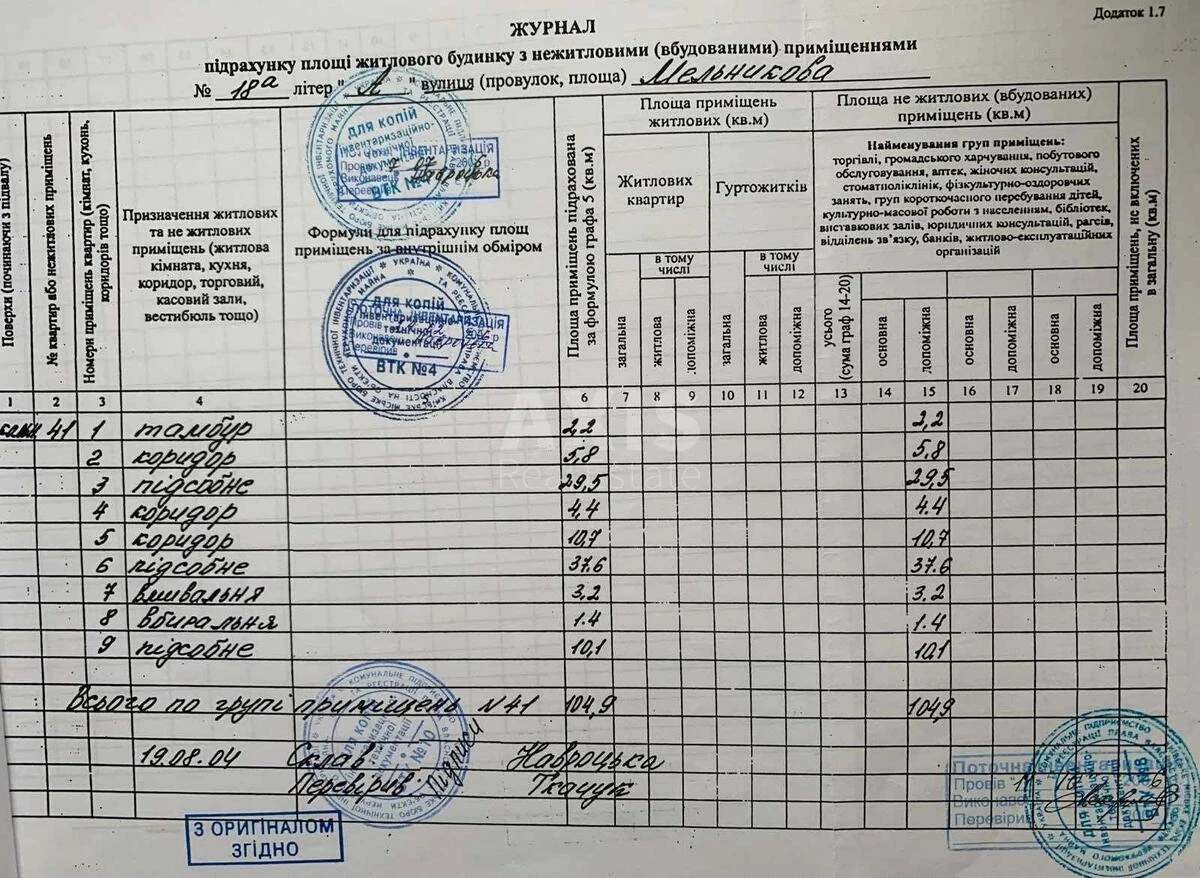 Додаток 1.7
ЖУРНАЛ
підрахунку площі житлового будинку з нежитловими (вбудованими) приміщеннями
№ 18а літер "А" вулиця (провулок, площа) Мельникова
Поверхи (починаючи з підвалу)
№ квартир або нежитлових приміщень
Номери приміщень квартир (кімнат, кухонь, коридорів тощо)
Призначення житлових та не житлових приміщень (житлова кімната, кухня, коридор, торговий, касовий зали, вестибюль тощо)
Формули для підрахунку площ приміщень за внутрішнім обміром
Площа приміщень підрахована за формулою графа 5 (кв.м)
Площа приміщень житлових (кв.м)
Житлових квартир
Гуртожитків
в тому числі
в тому числі
загальна
житлова
допоміжна
загальна
житлова
допоміжна
Площа не житлових (вбудованих) приміщень (кв.м)
Найменування груп приміщень:
торгівлі, громадського харчування, побутового
обслуговування, аптек, жіночих консультацій,
стоматполіклінік, фізкультурно-оздоровчих
занять, груп короткочасного перебування дітей,
культурно-масової роботи з населенням, бібліотек,
виставкових залів, юридичних консультацій, рагсів,
відділень зв'язку, банків, житлово-експлуатаційних
організацій
усього (сума граф 14-20)
основна
допоміжна
основна
допоміжна
основна
допоміжна
Площа приміщень, не включених в загальну (кв.м)
1 2 3 4 5 6 7 8 9 10 11 12 13 14 15 16 17 18 19 20
41 1 тамбур 2,2 2,2
2 коридор 5,8 5,8
3 підсобне 29,5 29,5
4 коридор 4,4 4.4
5 коридор 10,7 10,7
6 підсобне 37.6 37.6
7 вмивальня 3,2 3.2
8 вбиральня 1.4 1.4
9 підсобне 10,1 10,1
Всього по групі приміщень N41 104,9 104,9
19.08.04 Склав Підписи Навроцька
Перевірив Ткачук
ДЛЯ КОПІЙ
інвентаризаційно-
технічної
документації
ВТК №4
ДЛЯ КОПІЙ
інвентаризаційно-
технічної
документації
ВТК №4
ПОТОЧНА ІНВЕНТАРИЗАЦІЯ
Провів
Виконавець
Перевірив
ДЛЯ КОПІЙ
№10
Поточна інвентаризація
Провів
Виконавець
Перевірив
З ОРИГІНАЛОМ
ЗГІДНО
AXIS
Real Estate